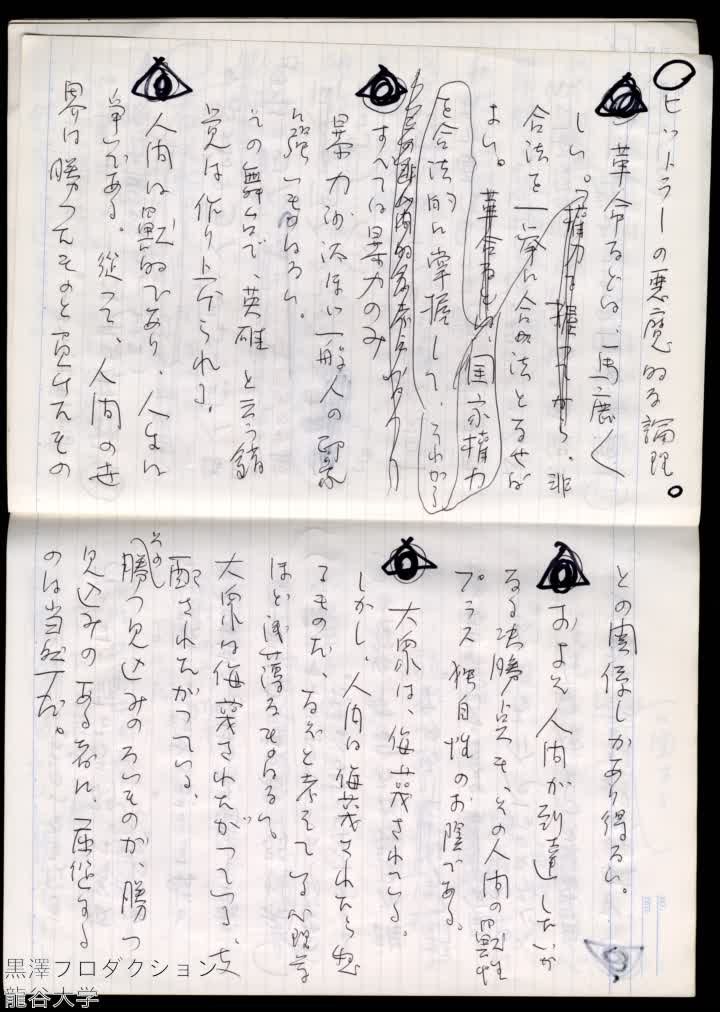 ヒットラーの悪魔的な論理。
革命なるとは、馬鹿く
しい。権力を握ってから、非
合法を一挙に合法となせば
よい。革命なとは、国家権力
を合法的に掌握して、それから
すべては暴力のみ
暴力沙汰ほど一般人の印象
に強いものはない。
その舞台で、英雄と云う錯
覚は作り上げられる。
人間は獣的であり、人生は
争いである。従って、人間の世
界は勝ったものと負けたもの
との関係しかあり得ない。
およそ人間が到達したいか
なる決勝点も、その人間の獣性
プラス独自性のお陰である。
大衆は、侮蔑されている。
しかし、人間は侮蔑されたら怒
るものだ、なぞと考えている心理学
ほど浅薄なものはない。
大衆は侮蔑されたがっている、支
配されたがっている。
その
勝つ見込みのないものが、勝つ
見込みのある者に、屈従する
のは当然だ。
黒澤プロダクション
龍谷大学